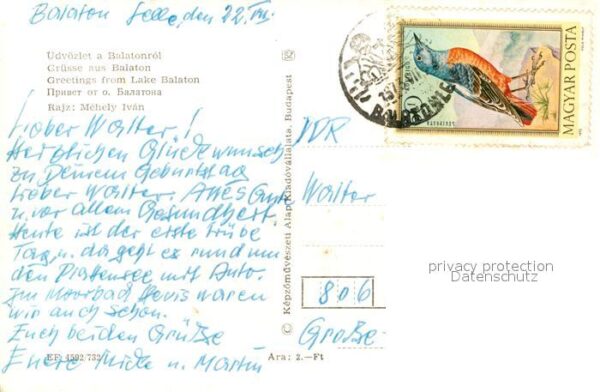 Balaton Lelle, den 22.VII.
Üdvözlet a Balatonról
Grüsse aus Balaton
Greetings from Lake Balaton
Привет от о. Балатона
Rajz: Méhely Iván
Lieber Walter!
Herzlichen Glückwunsch
zu Deinem Geburtstag
Lieber Walter. Alles Gute
u. vor allem Gesundheit.
Heute ist der erste trübe
Tag u. da geht es rund um
den Plattensee mit Auto.
Im Moorbad Hevis waren
wir auch schon.
Euch beiden Grüße
Eure u. Martin
EF. 4592/732/
Ara: 2.-Ft
© Képzőművészeti Alap Kiadóvállalata, Budapest
Walter
806
Große
MAGYAR POSTA
privacy protection
Datenschutz